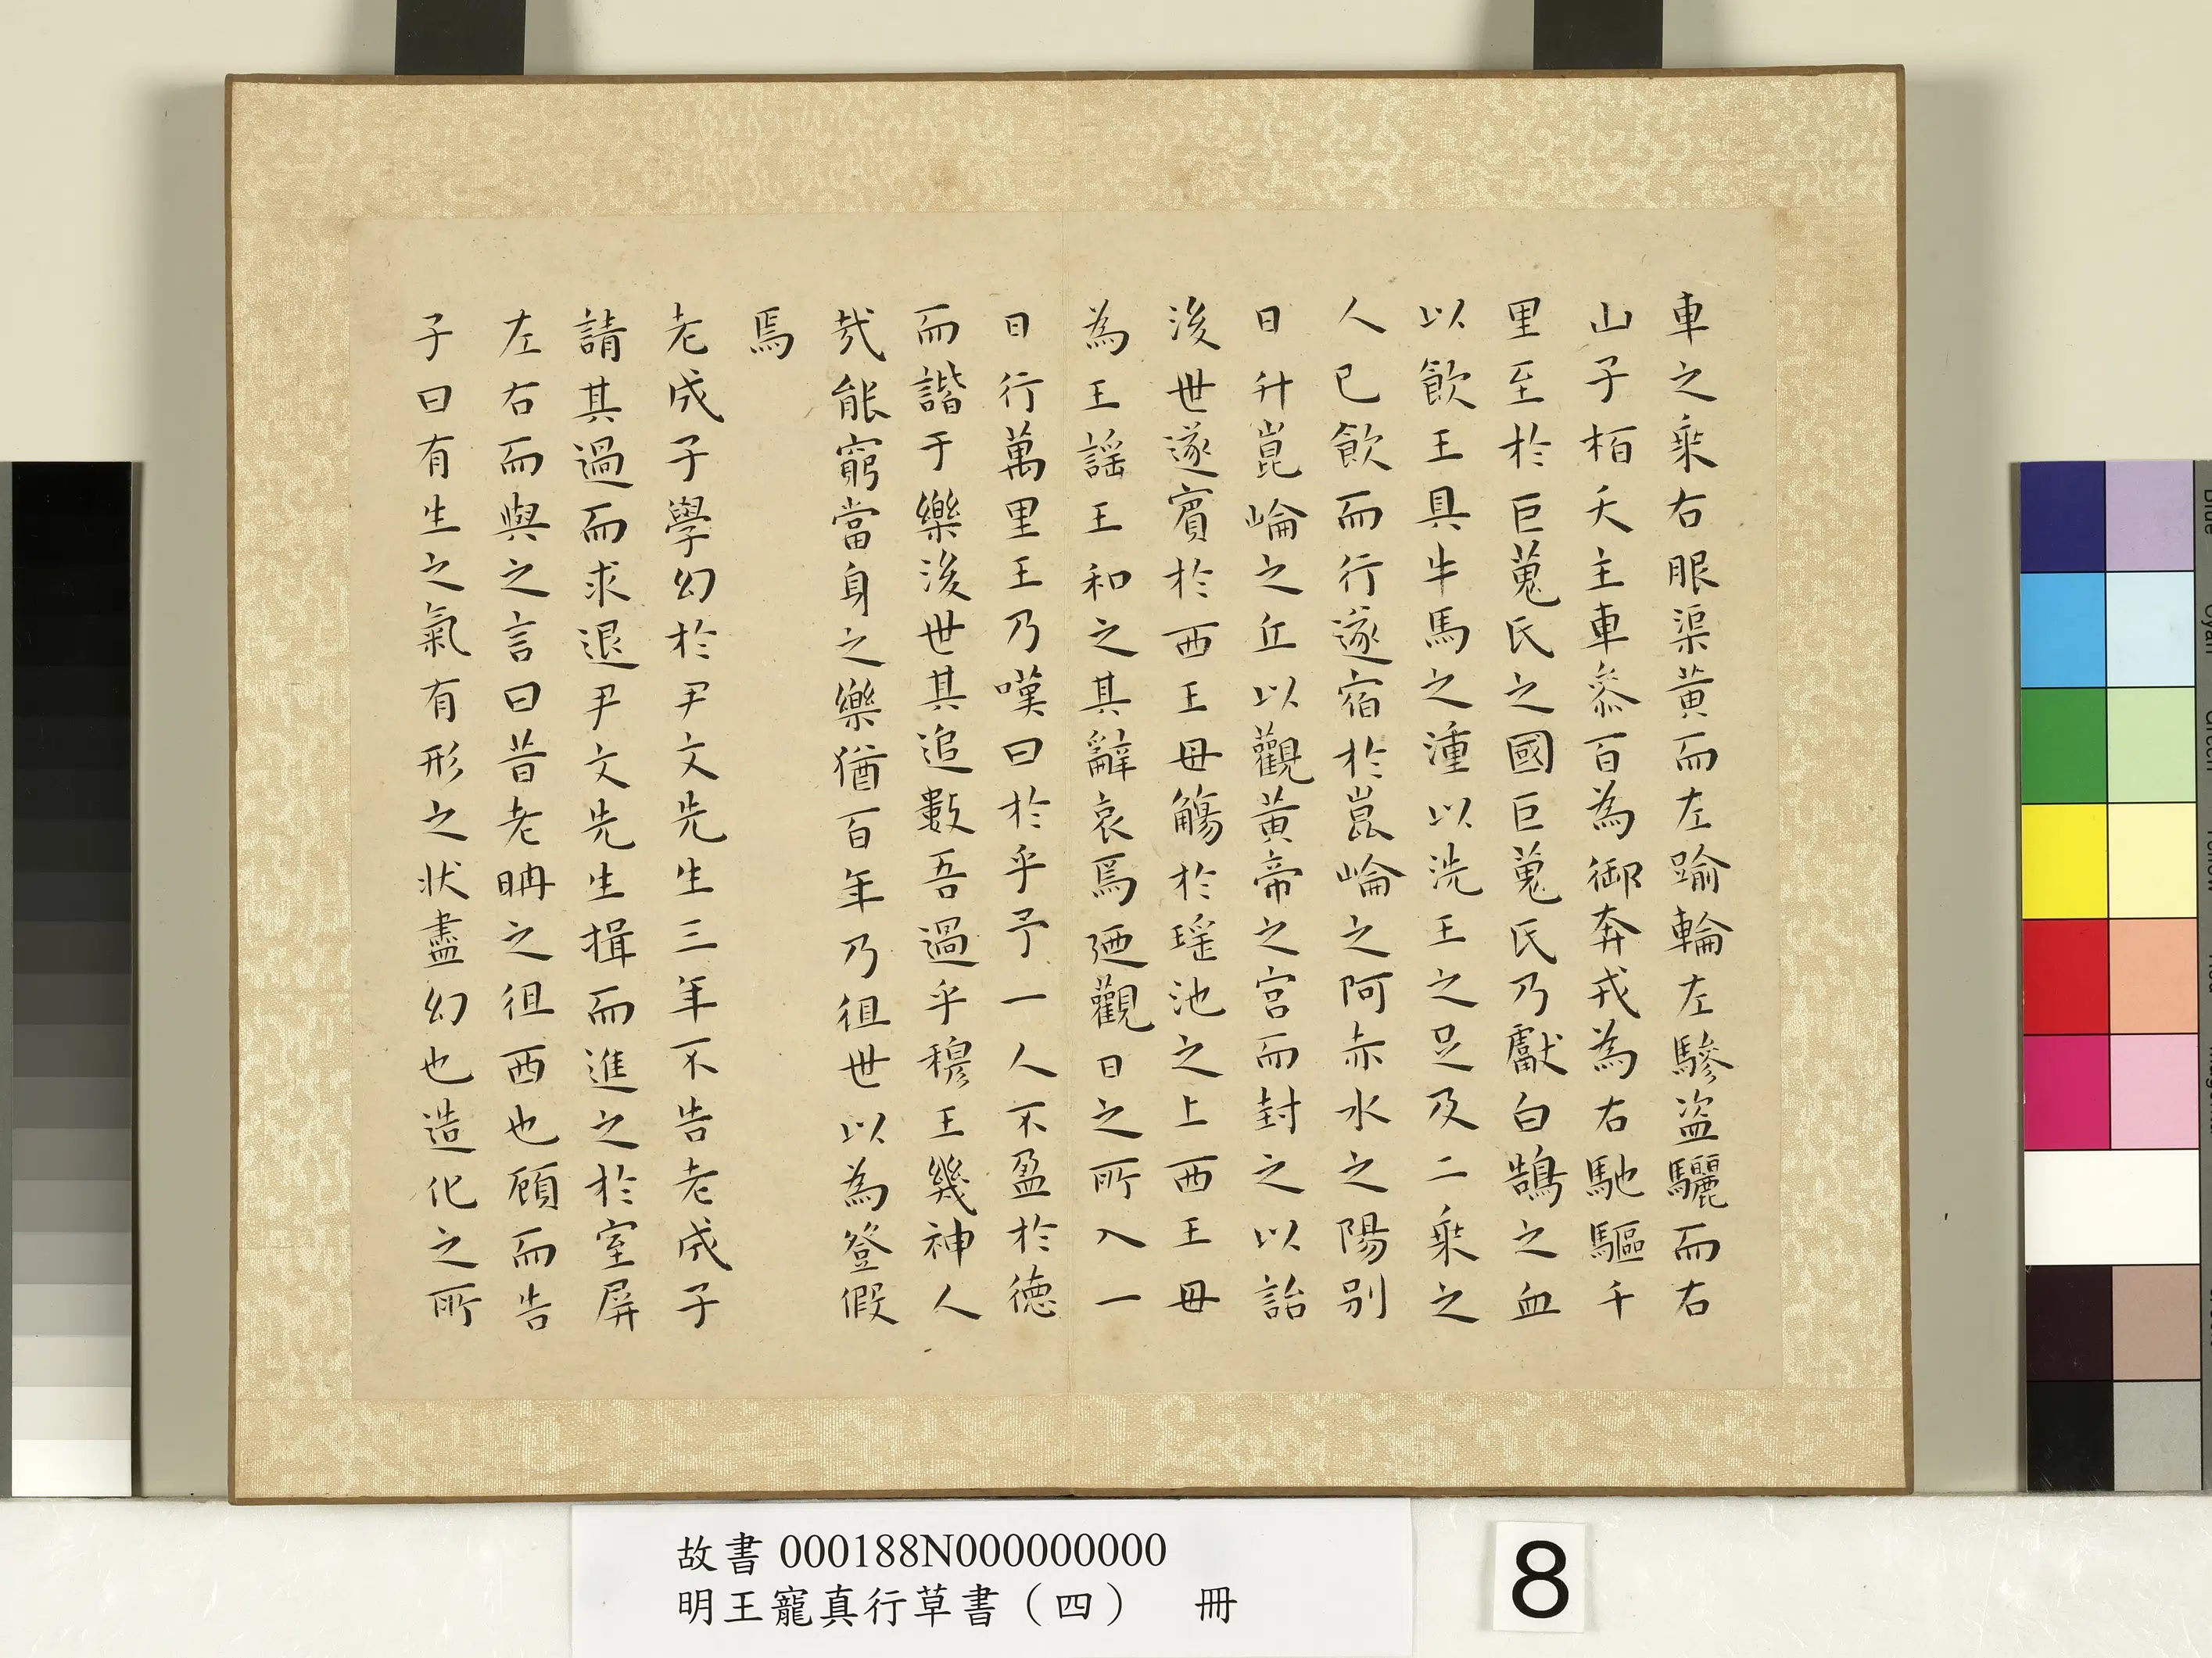 車之乘右服渠黃而左踰輪左驂盜驪而右
山子栢夭主車叅百為御奔戎為右馳驅千
里至於巨蒐氏之國巨蒐氏乃獻白鵠之血
以飲王具牛馬之湩以洗王之足及二乘之
人已飲而行遂宿於崑崙之阿赤水之陽別
日升崑崙之丘以觀黃帝之宮而封之以詒
後世遂賓於西王母觴於瑤池之上西王母
為王謠王和之其辭哀焉迺觀日之所入一
日行萬里王乃嘆曰於乎予一人不盈於德
而諧于樂後世其追數吾過乎穆王幾神人
哉能窮當身之樂猶百年乃徂世以為登假
焉
老成子學幻於尹文先生三年不告老成子
請其過而求退尹文先生揖而進之於室屏
左右而與之言曰昔老聃之徂西也顧而告
子曰有生之氣有形之狀盡幻也造化之所
故書 000188N000000000
明王寵真行草書（四） 冊
8